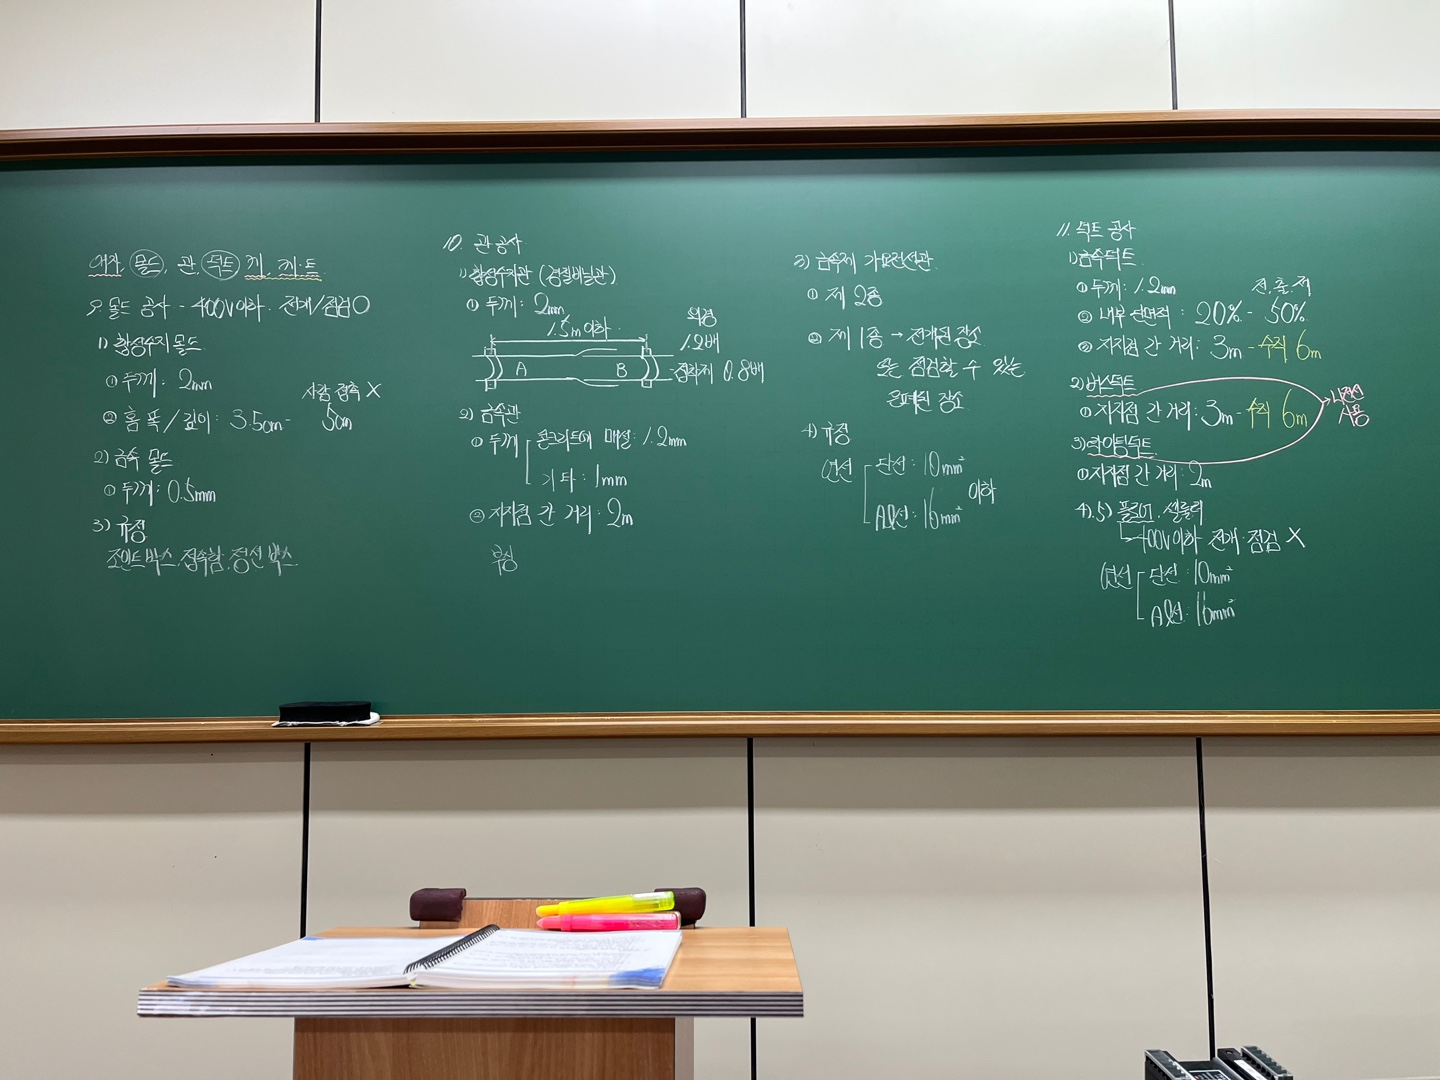 애자, 몰드, 관, 덕트, 케, 케·트
9. 몰드 공사 - 400V이하. 전개/점검○
1) 합성수지 몰드
① 두께: 2mm
사람 접촉 X
② 홈 폭/깊이: 3.5cm- 5cm
2) 금속 몰드
① 두께: 0.5mm
3) 규정
조인트 박스. 접속함. 정션 박스.
10. 관 공사
1) 합성수지관 (경질비닐관)
① 두께: 2mm
1.5m이하.
외경
1.2배
A B
접착제 0.8배
2) 금속관
① 두께 콘크리트에 매설: 1.2mm
기타: 1mm
② 지지점 간 거리: 2m
부싱
3) 금속제 가요전선관
① 제 2종
② 제 1종 → 전개된 장소
또는 점검할 수 있는
은폐된 장소
4) 규정
연선 단선: 10mm²
이하
Al선: 16mm²
11. 덕트 공사
1) 금속덕트
① 두께: 1.2mm
전. 출. 적
② 내부 단면적: 20% - 50%
③ 지지점 간 거리: 3m - 수직 6m
2) 버스덕트
① 지지점 간 거리: 3m - 수직 6m
→나전선
사용
3) 라이팅덕트
① 지지점 간 거리: 2m
4).5) 플로어. 셀룰러
→400V이하 전개·점검 X
연선 단선: 10mm²
Al선: 16mm²